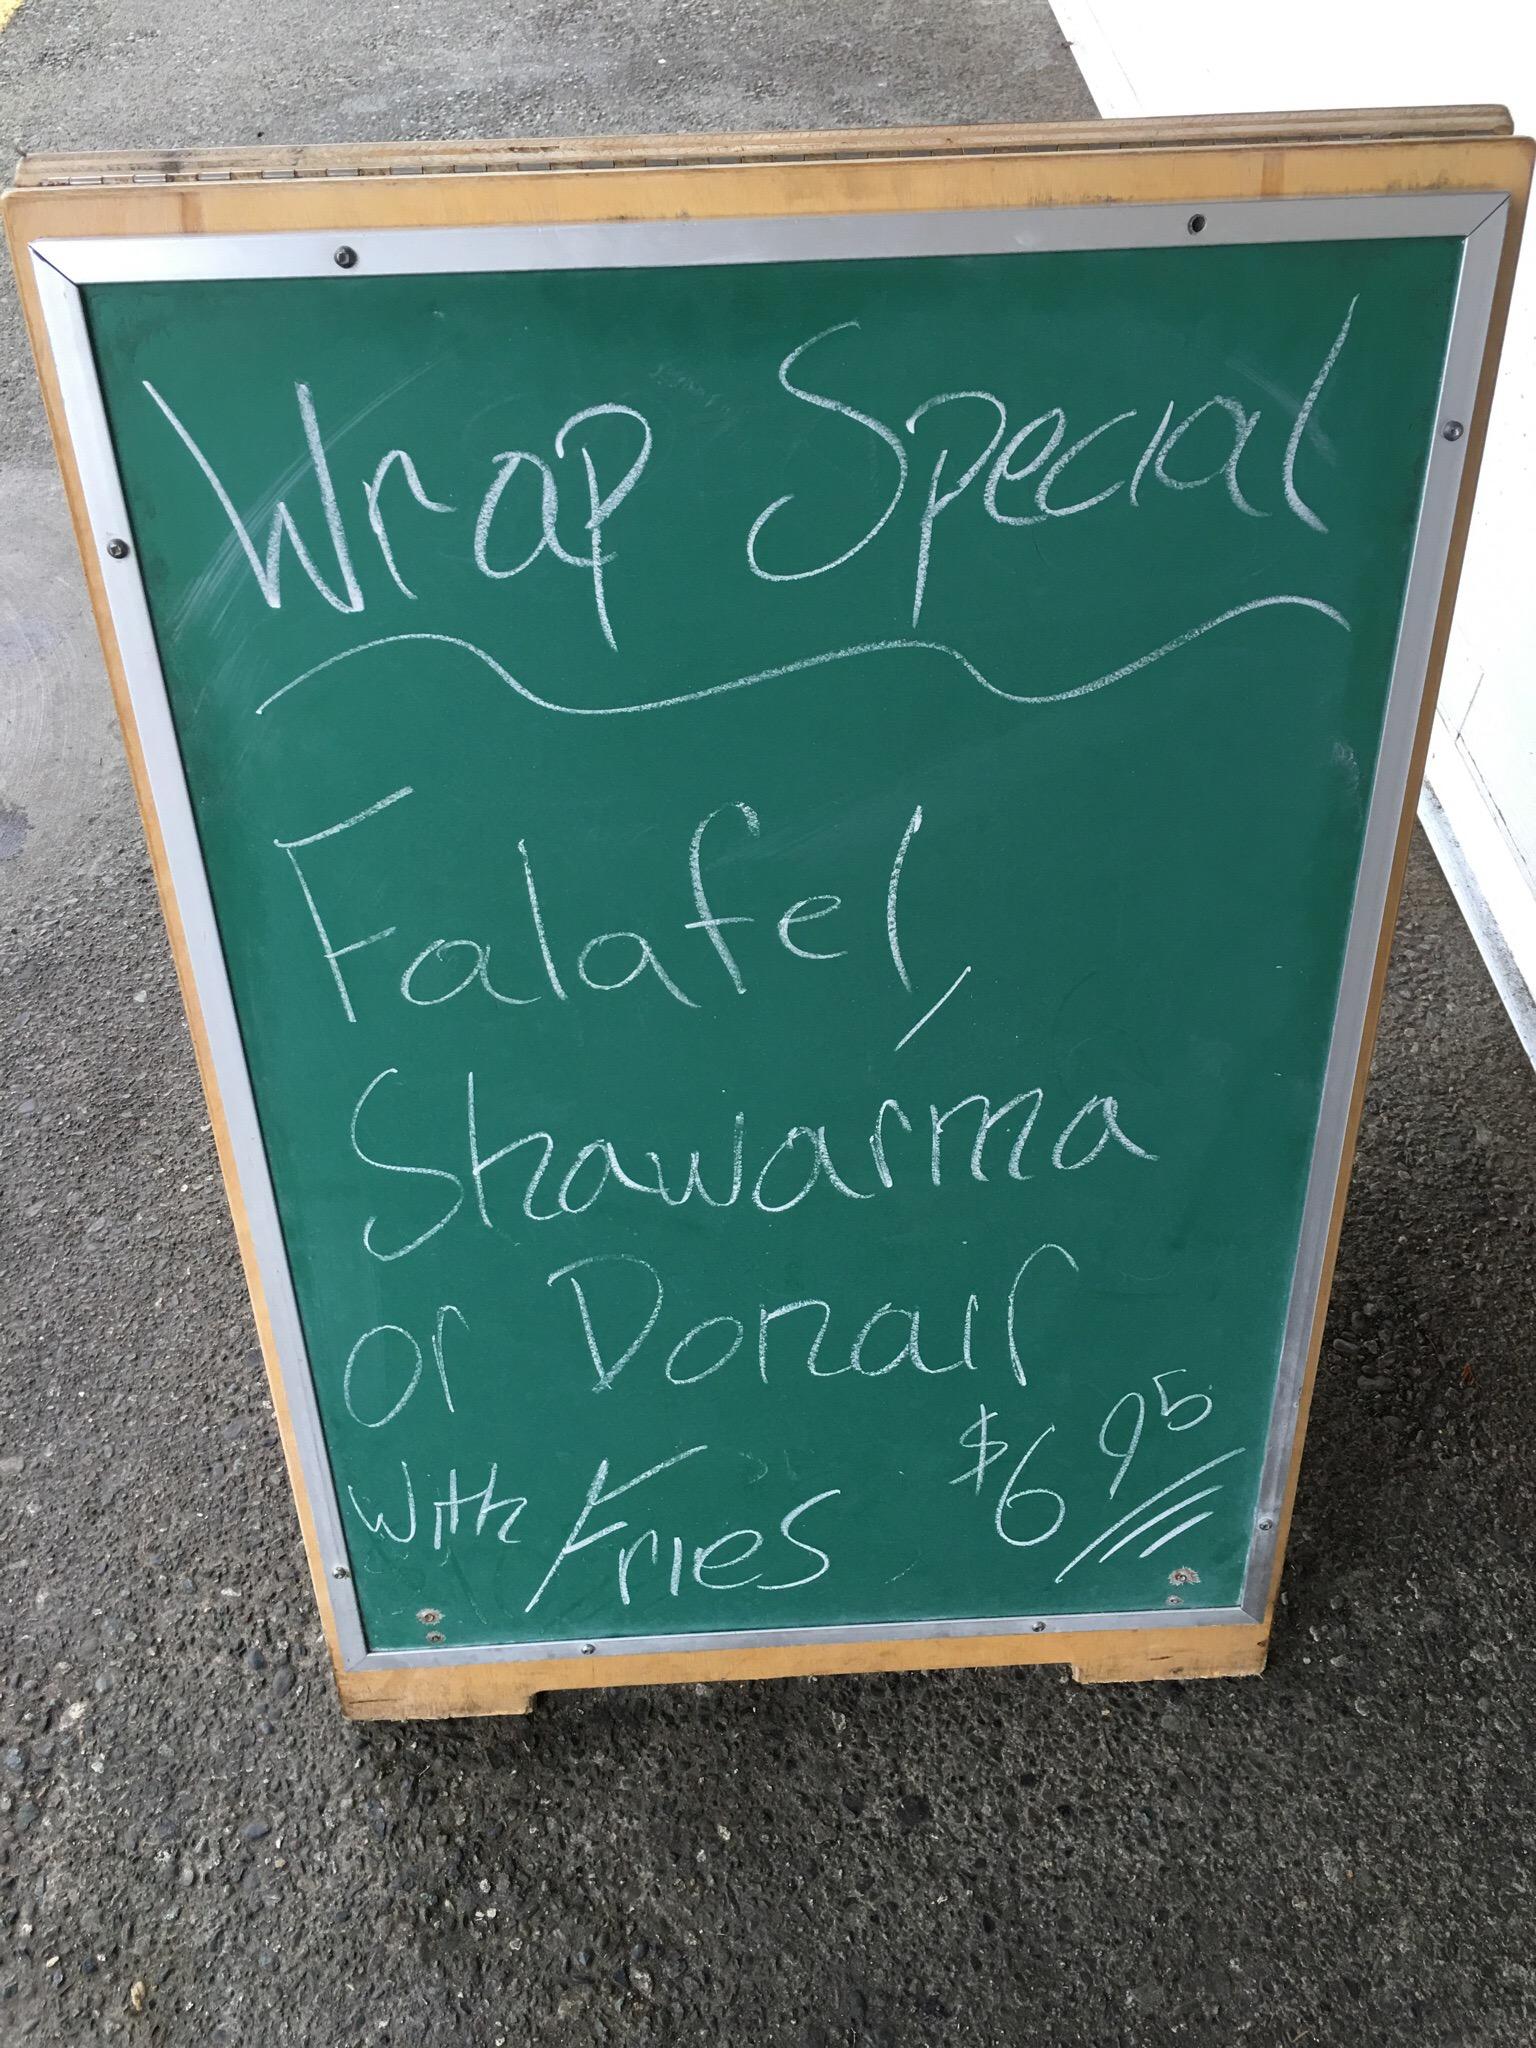 Wrap Special
Falafel,
Shawarma
or Donair
with Fries $6.95